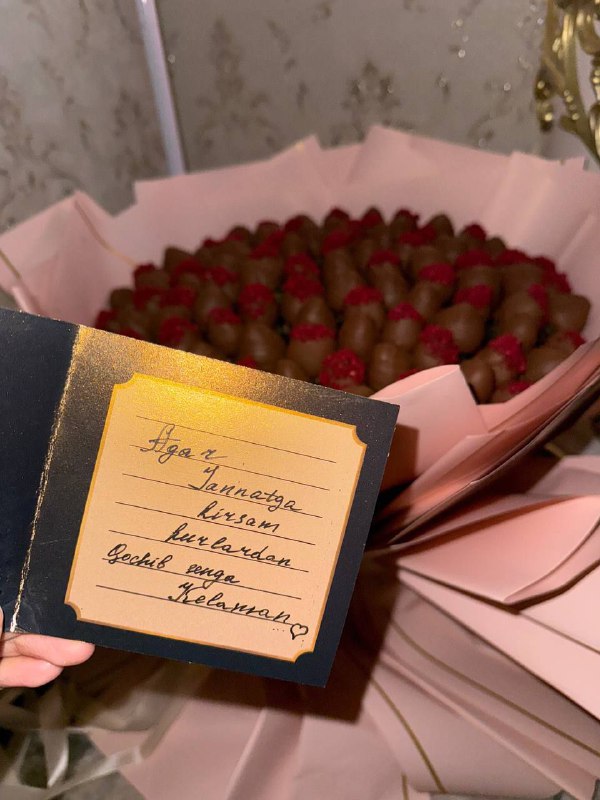 Agar
Jannatga
kirsam
hurlardan
Qochib senga
Kelaman♡